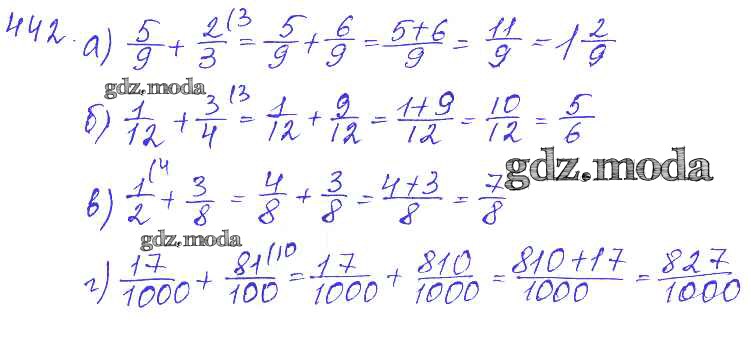 442. а) 5/9 + 2/3 (3 = 5/9 + 6/9 = 5+6/9 = 11/9 = 1 2/9
gdz.moda
б) 1/12 + 3/4 (3 = 1/12 + 9/12 = 1+9/12 = 10/12 = 5/6
gdz.moda
в) 1/2 (4 + 3/8 = 4/8 + 3/8 = 4+3/8 = 7/8
gdz.moda
г) 17/1000 + 81/100 (10 = 17/1000 + 810/1000 = 810+17/1000 = 827/1000